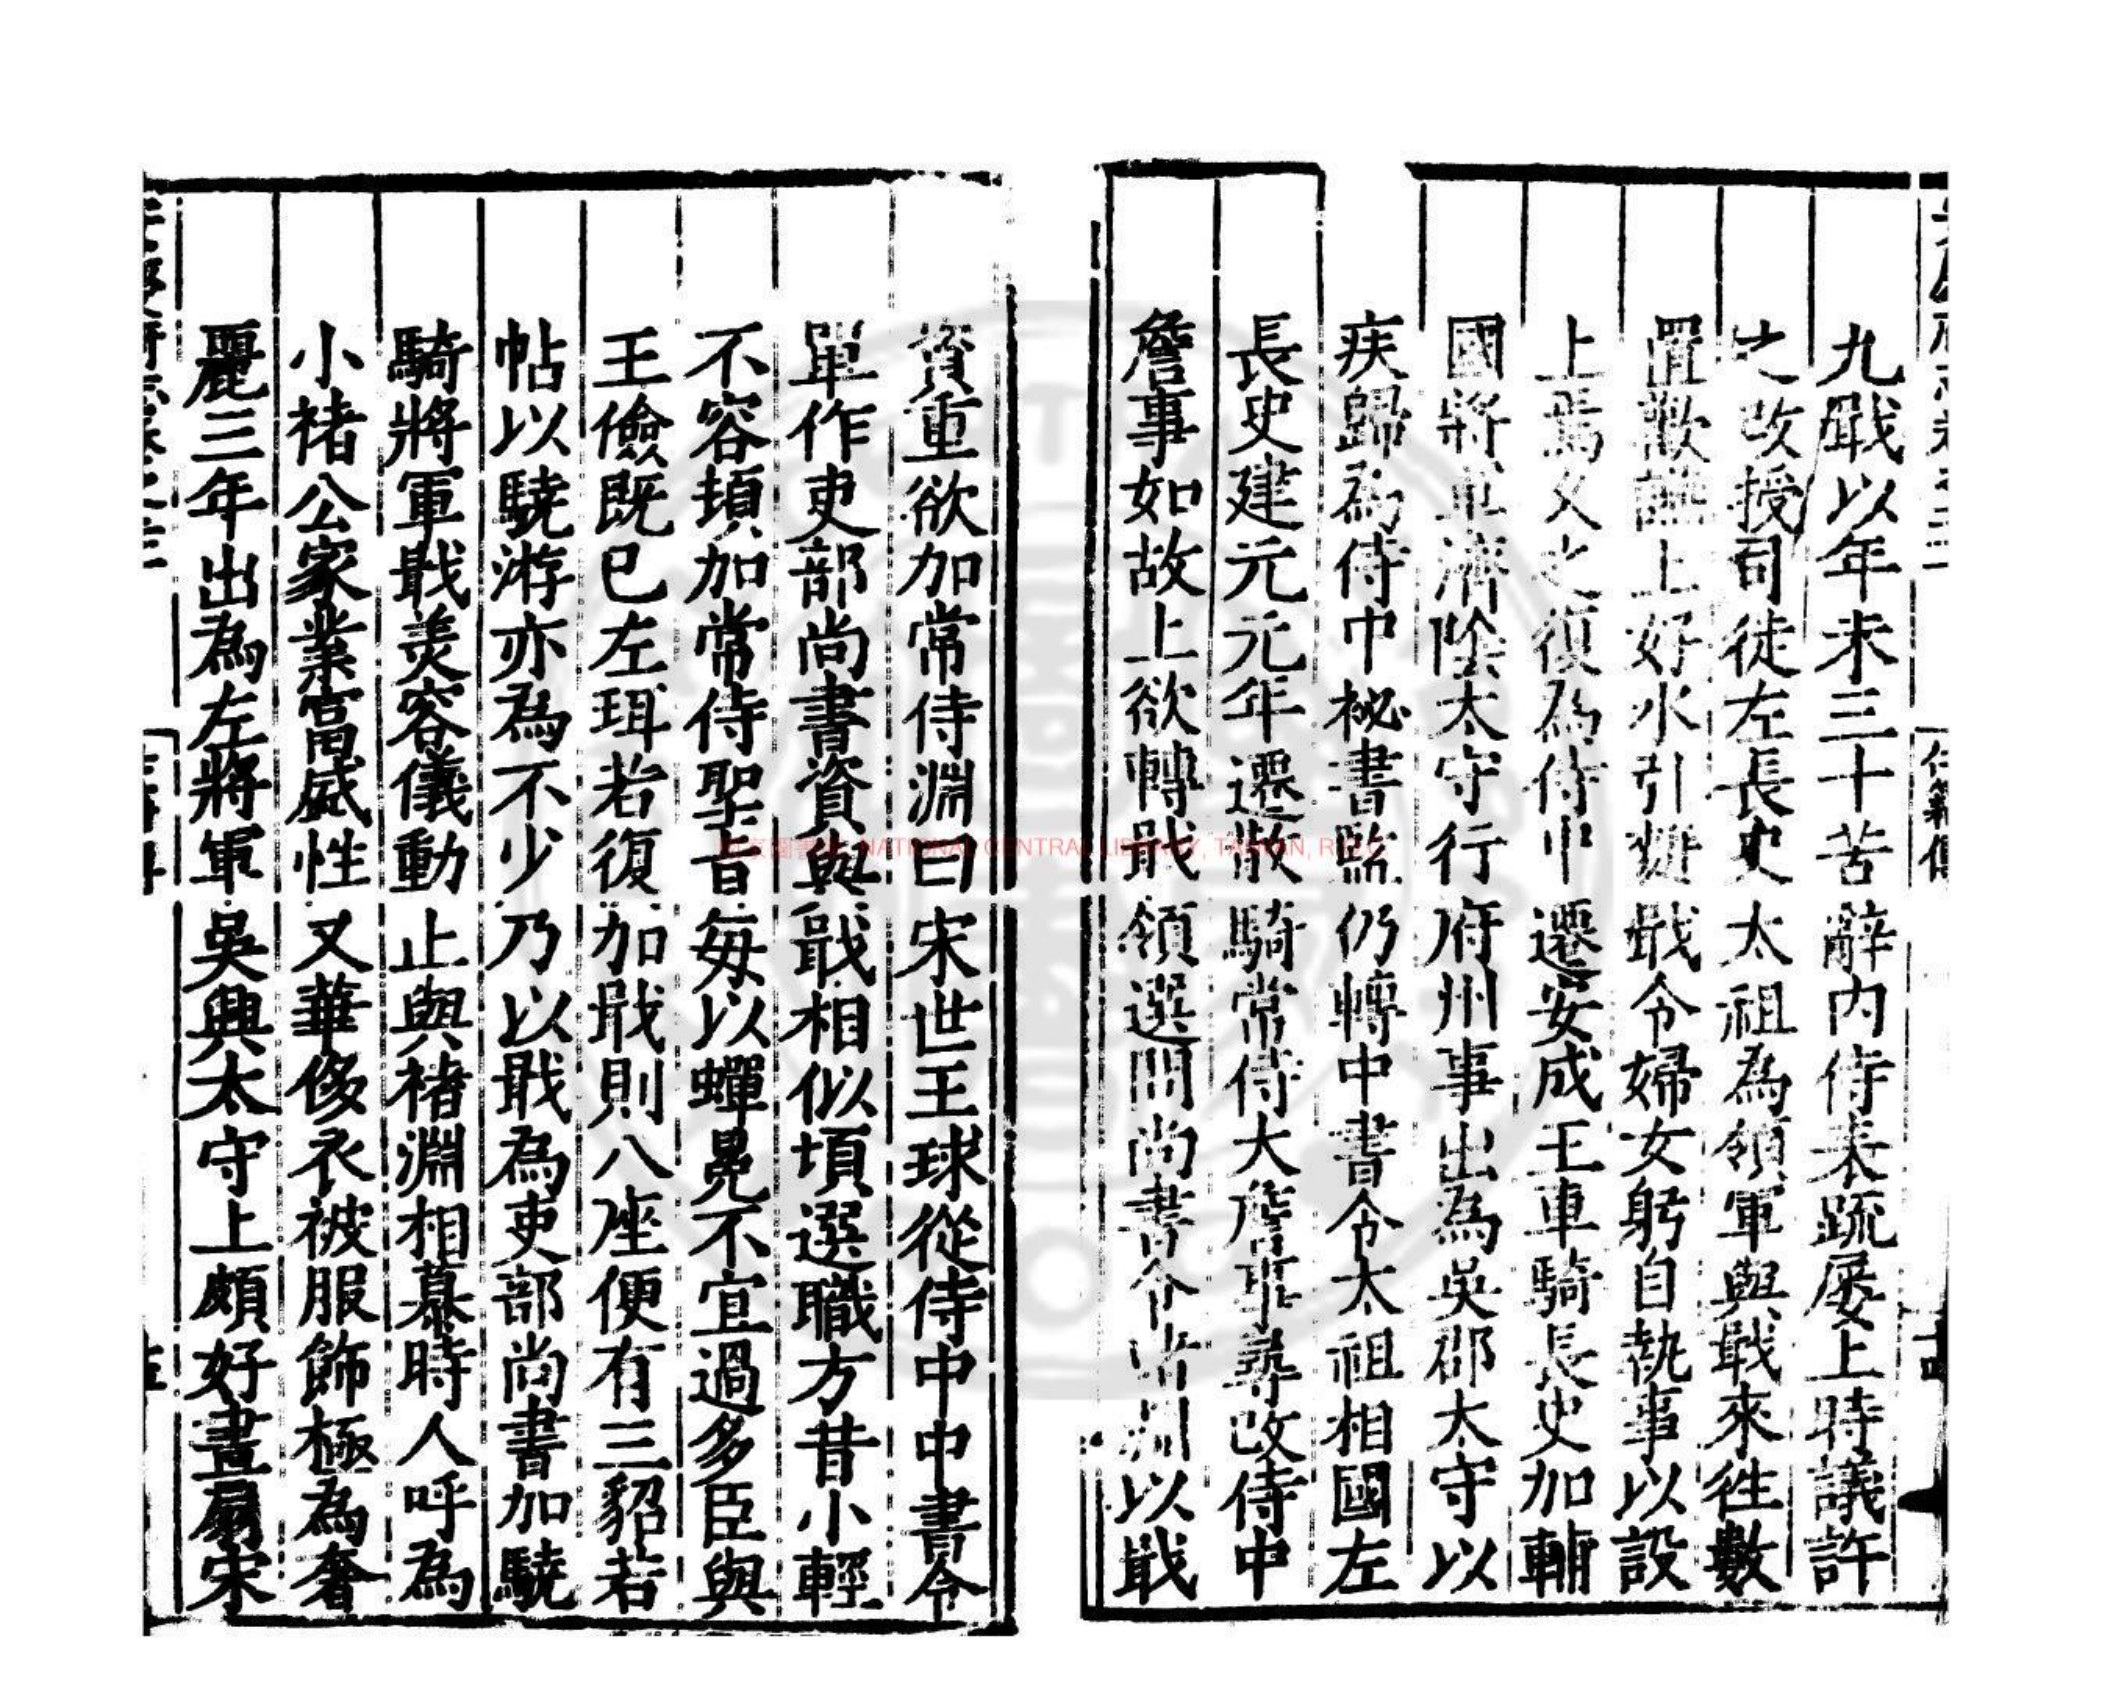 九戢以年未三十苦辭内侍表疏屡上時議許
之改授司徒左長史太祖為領軍與戢來徃數
置歡讌上好水引戢令婦女躬自執事以設
上焉久之復為侍中遷安成王車騎長史加輔
國將軍濟陰太守行府州事出為吳郡太守以
疾歸為侍中祕書監仍轉中書令太祖相國左
長史建元元年遷散騎常侍大詹事尋改侍中
詹事如故上欲轉戢領選問尚書令褚淵以戢
資重欲加常侍淵曰宋世王球從侍中中書令
單作吏部尚書資與戢相似頃選職方昔小輕
不容頓加常侍聖旨毎以蟬冕不宜過多臣與
王儉既已左珥若復加戢則八座便有三貂若
帖以驍游亦為不少乃以戢為吏部尚書加驍
騎將軍戢美容儀動止與褚淵相慕時人呼為
小褚公家業富盛性又華侈衣被服飾極為奢
麗三年出為左將軍吳興太守上頗好畫扇宋
國家圖書館 NATIONAL CENTRAL LIBRARY, TAIWAN, R.O.C.